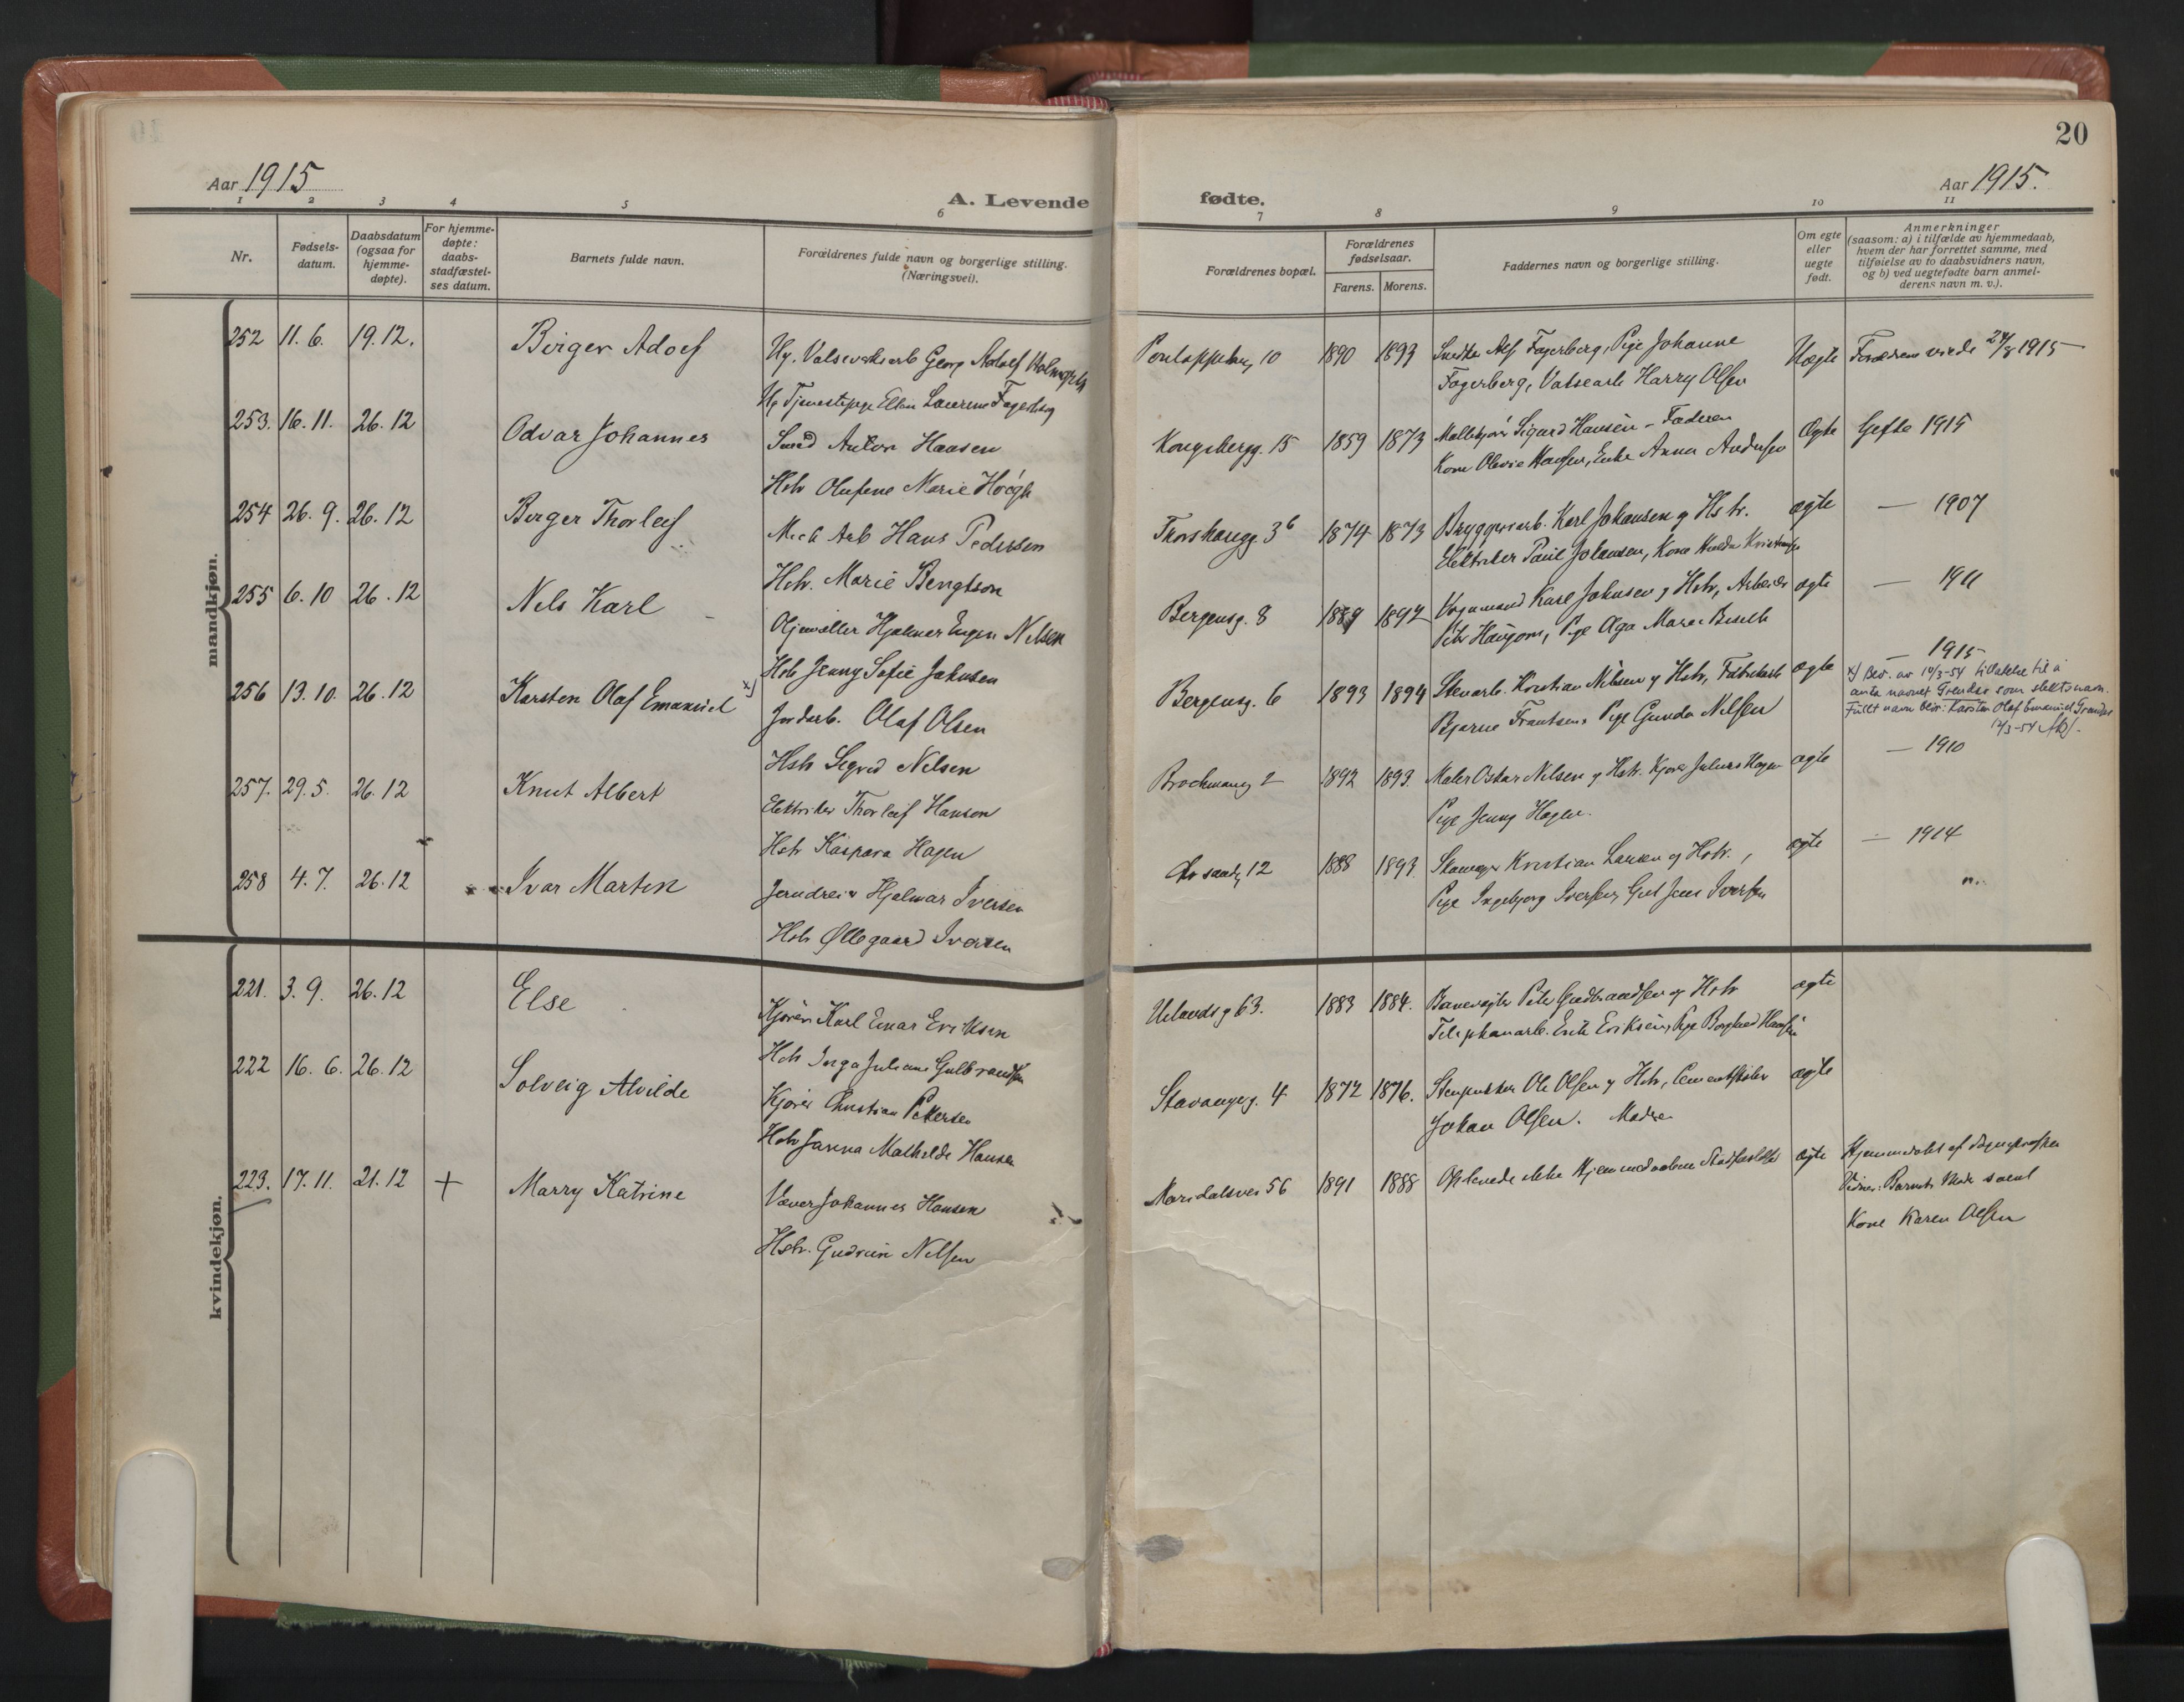 20
Aar 1915
A. Levende
fødte.
Aar 1915.
1 2 3 4 5 6 7 8 9 10 11
Nr.
Fødsels-
datum.
Daabsdatum
(ogsaa for
hjemme-
døpte).
For hjemme-
døpte:
daabs-
stadfæstel-
ses datum.
Barnets fulde navn.
Forældrenes fulde navn og borgerlige stilling.
(Næringsvei).
Forældrenes bopæl.
Forældrenes
fødselsaar.
Farens. Morens.
Faddernes navn og borgerlige stilling.
Om egte
eller
uegte
født.
Anmerkninger
(saasom: a) i tilfælde av hjemmedaab,
hvem der har forrettet samme, med
tilføielse av to daabsvidners navn,
og b) ved uegtefødte barn anmel-
derens navn m. v.).
mandkjøn.
252 11. 6. 19. 12. Birger Adolf
Ug. Valseverksarb Georg Adolf Holmqvist
Ug Tjenestepige Ellen Laurense Fagerberg
10 1890 1893
Snedker Alf Fagerberg, Pige Johanne
Fagerberg, Valsearb Harry Olsen
Uægte
Forældrene viede 24/8 1915
253. 16. 11. 26. 12 Odvar Johannes
Smed Anton Haasen
Hstr Olufine Marie Höegh
Kongsbergg. 15 1859 1873
Sigurd Hansen - Faderen
Kone Olevie Hansen, Enke Anna Andersen
Ægte
Gifte 1915
254 26. 9. 26. 12 Birger Thorleif
Mek Arb Hans Pedersen
Hstr. Marie Bengtson
Thorshaugg. 3b 1874 1873
Bryggeriarb. Karl Johansen og Hstr.
Elektriker Paul Johansen, Kone Hulda Kristensen
ægte
— 1907
255 6. 10 26. 12 Nels Karl
Hjalmar Eugen Nelsen
Hstr Jenny Sofie Johnsen
Bergensg. 8 1889 1892
Vognmand Karl Johnsen og Hstr, Arbeider
Petr Haugom, Pige Olga Marie Busch
ægte
— 1911
256 13. 10. 26. 12 Karsten Olaf Emanuel x)
Jordarb. Olaf Olsen
Hstr Sigrid Nelsen
Bergensg. 6 1893 1894
Stenarb. Kristian Nilsen og Hstr, Fabrikarb
Bjarne Frantsen, Pige Gunda Nelsen
ægte
— 1915
x) Bev. av 10/3-54 tillatelse til å
anta navnet Trendes som slektsnavn.
Fullt navn blir: Karsten Olaf Emanuel Trendes
12/3-54
257. 29. 5. 26. 12 Knut Albert
Elektriker Thorleif Hansen
Hstr Kaspara Hagen
Brochmansg 2 1892 1893.
Maler Oskar Nilsen og Hstr. Kjører Julius Hagen
Pige Jenny Hagen.
ægte
— 1910
258 4. 7. 26. 12 Ivar Martin
Jerndreier Hjalmar Iversen
Hstr Øllegaard Iversen
12 1888 1893.
Kristian Larsen og Hstr.,
Pige Ingeborg Iversen, Gut Jens Iversen
ægte
— 1914
kvindekjøn.
221. 3. 9. 26. 12 Else
Kjører Karl Einar Eriksen
Hstr Inga Juliane Gulbrandsen
Uelandsg 63. 1883 1884.
Banevogter Peter Gudbrandsen og Hstr
Telephonarb. Erik Eriksen, Pige Borghild Hansen
ægte
222 16. 6. 26. 12 Solveig Alvilde
Kjører Christian Pettersen
Hstr Mathilde Hansen
Stavangerg. 4 1872 1876.
Stenpukker Ole Olsen og Hstr, Cementstøber
Johan Olsen. Modre
ægte
223. 17. 11. 21. 12 + Marry Katrine
Væver Johannes Hansen
Hstr. Gudrun Nelsen
Maridalsvei 56 1891 1888
Oplevede ikke Hjemmedaabens Stadfæstelse
ægte
Hjemmedøbt af
Vidner: Barnets Mode samt
Kone Karen Olsen